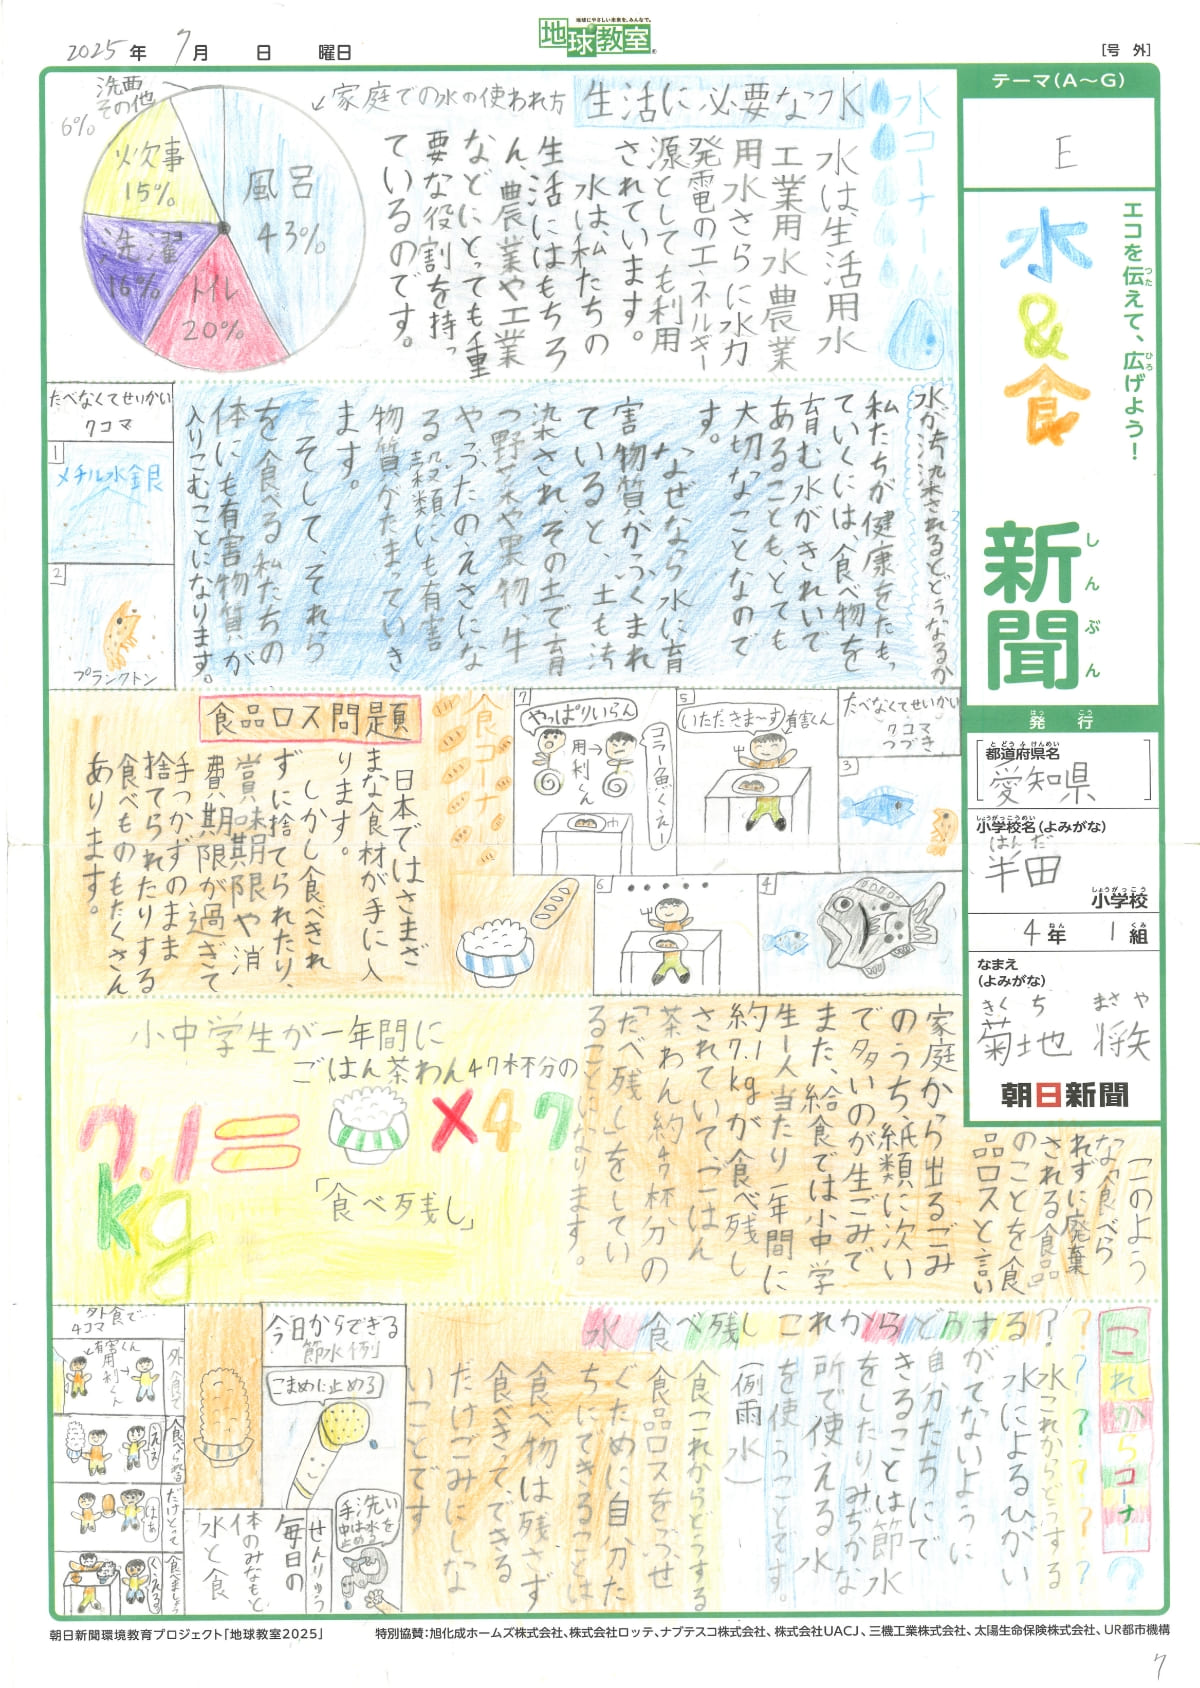 2025年 7月 日 曜日
地球にやさしい未来を、みんなで。
地球教室
[号 外]
テーマ(A〜G)
E
エコを伝えて、広げよう!
つた
ひろ
水&食
新聞
しんぶん
発行
はっこう
都道府県名
とどうふけんめい
愛知県
小学校名(よみがな)
しょうがっこうめい
はんだ
半田
小学校
しょうがっこう
4年 1組
ねん くみ
なまえ
(よみがな)
きくち まさや
菊地 将矢
朝日新聞
水コーナー
生活に必要な水
水は、生活用水
工業用水農業
用水さらに水力
発電のエネルギー
源としても利用
されています。
水は、私たちの
生活にはもちろ
ん、農業や工業
などにとっても重
要な役割を持っ
ているのです。
↙家庭での水の使われ方
風呂
43%
トイレ
20%
洗濯
16%
炊事
15%
洗面
その他
6%
水が汚染されるとどうなるか
私たちが健康をたもっ
ていくには、食べ物を
育む水がきれいで
あることも、とても
大切なことなので
す。
なぜなら水に有
害物質がふくまれ
ていると、土も汚
染され、その土で育
つ野菜や果物、牛
やぶたのえさにな
る穀類にも有害
物質がたまっていき
ます。
そして、それら
を食べる私たちの
体にも有害物質が
入りこむことになります。
たべなくてせいかい
7コマ
1
メチル水銀
2
プランクトン
たべなくてせいかい
7コマ
つづき
3
4
5
いただきま〜す
有害くん
6
・・・・・・
7
やっぱりいらん
用利くん
コラー魚くえー
食コーナー
食品ロス問題
日本ではさまざ
まな食材が手に入
ります。
しかし食べきれ
ずに捨てられたり、
賞味期限や消
費期限が過ぎて
手つかずのまま
捨てられたりする
食べものもたくさん
あります。
家庭から出るごみ
のうち、紙類に次い
で多いのが生ごみで
また、給食では小中学
生一人当たり一年間に
約7.1kgが食べ残し
されていて、ごはん
茶わん約47杯分の
「たべ残し」をしてい
ることになります。
小中学生が一年間に
ごはん茶わん47杯分の
7.1kg=×47
「食べ残し」
「このよう
な「食べら
れずに廃棄
される食品」
のことを食
品ロスと言い
これからコーナー
?
?????
水 食べ残し これからどうする?
水これからどうする
水によるひがい
がでないように
自分たちにで
きることは節水
をしたりみぢかな
所で使える水
を使うことです。
(例雨水)
食これからどうする
食品ロスをふせ
ぐために自分た
ちにできることは
食べ物は残さず
食べきって、できる
だけごみにしな
いことです
今日からできる
節水例
こまめに止める
手洗い中は水を止める
せんりゅう
毎日の
体のみなもと
水と食
外食で…
4コマ
有害くん
用利くん
外食して
食べられる
だけとって
食べましょう